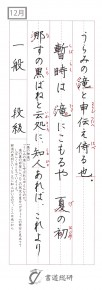 12月
うらみの滝と申伝え侍る也。
暫時は滝にこもるや夏の初
那すの黒ばねと云処に知人あれば、これより
一般 段級
書道総研